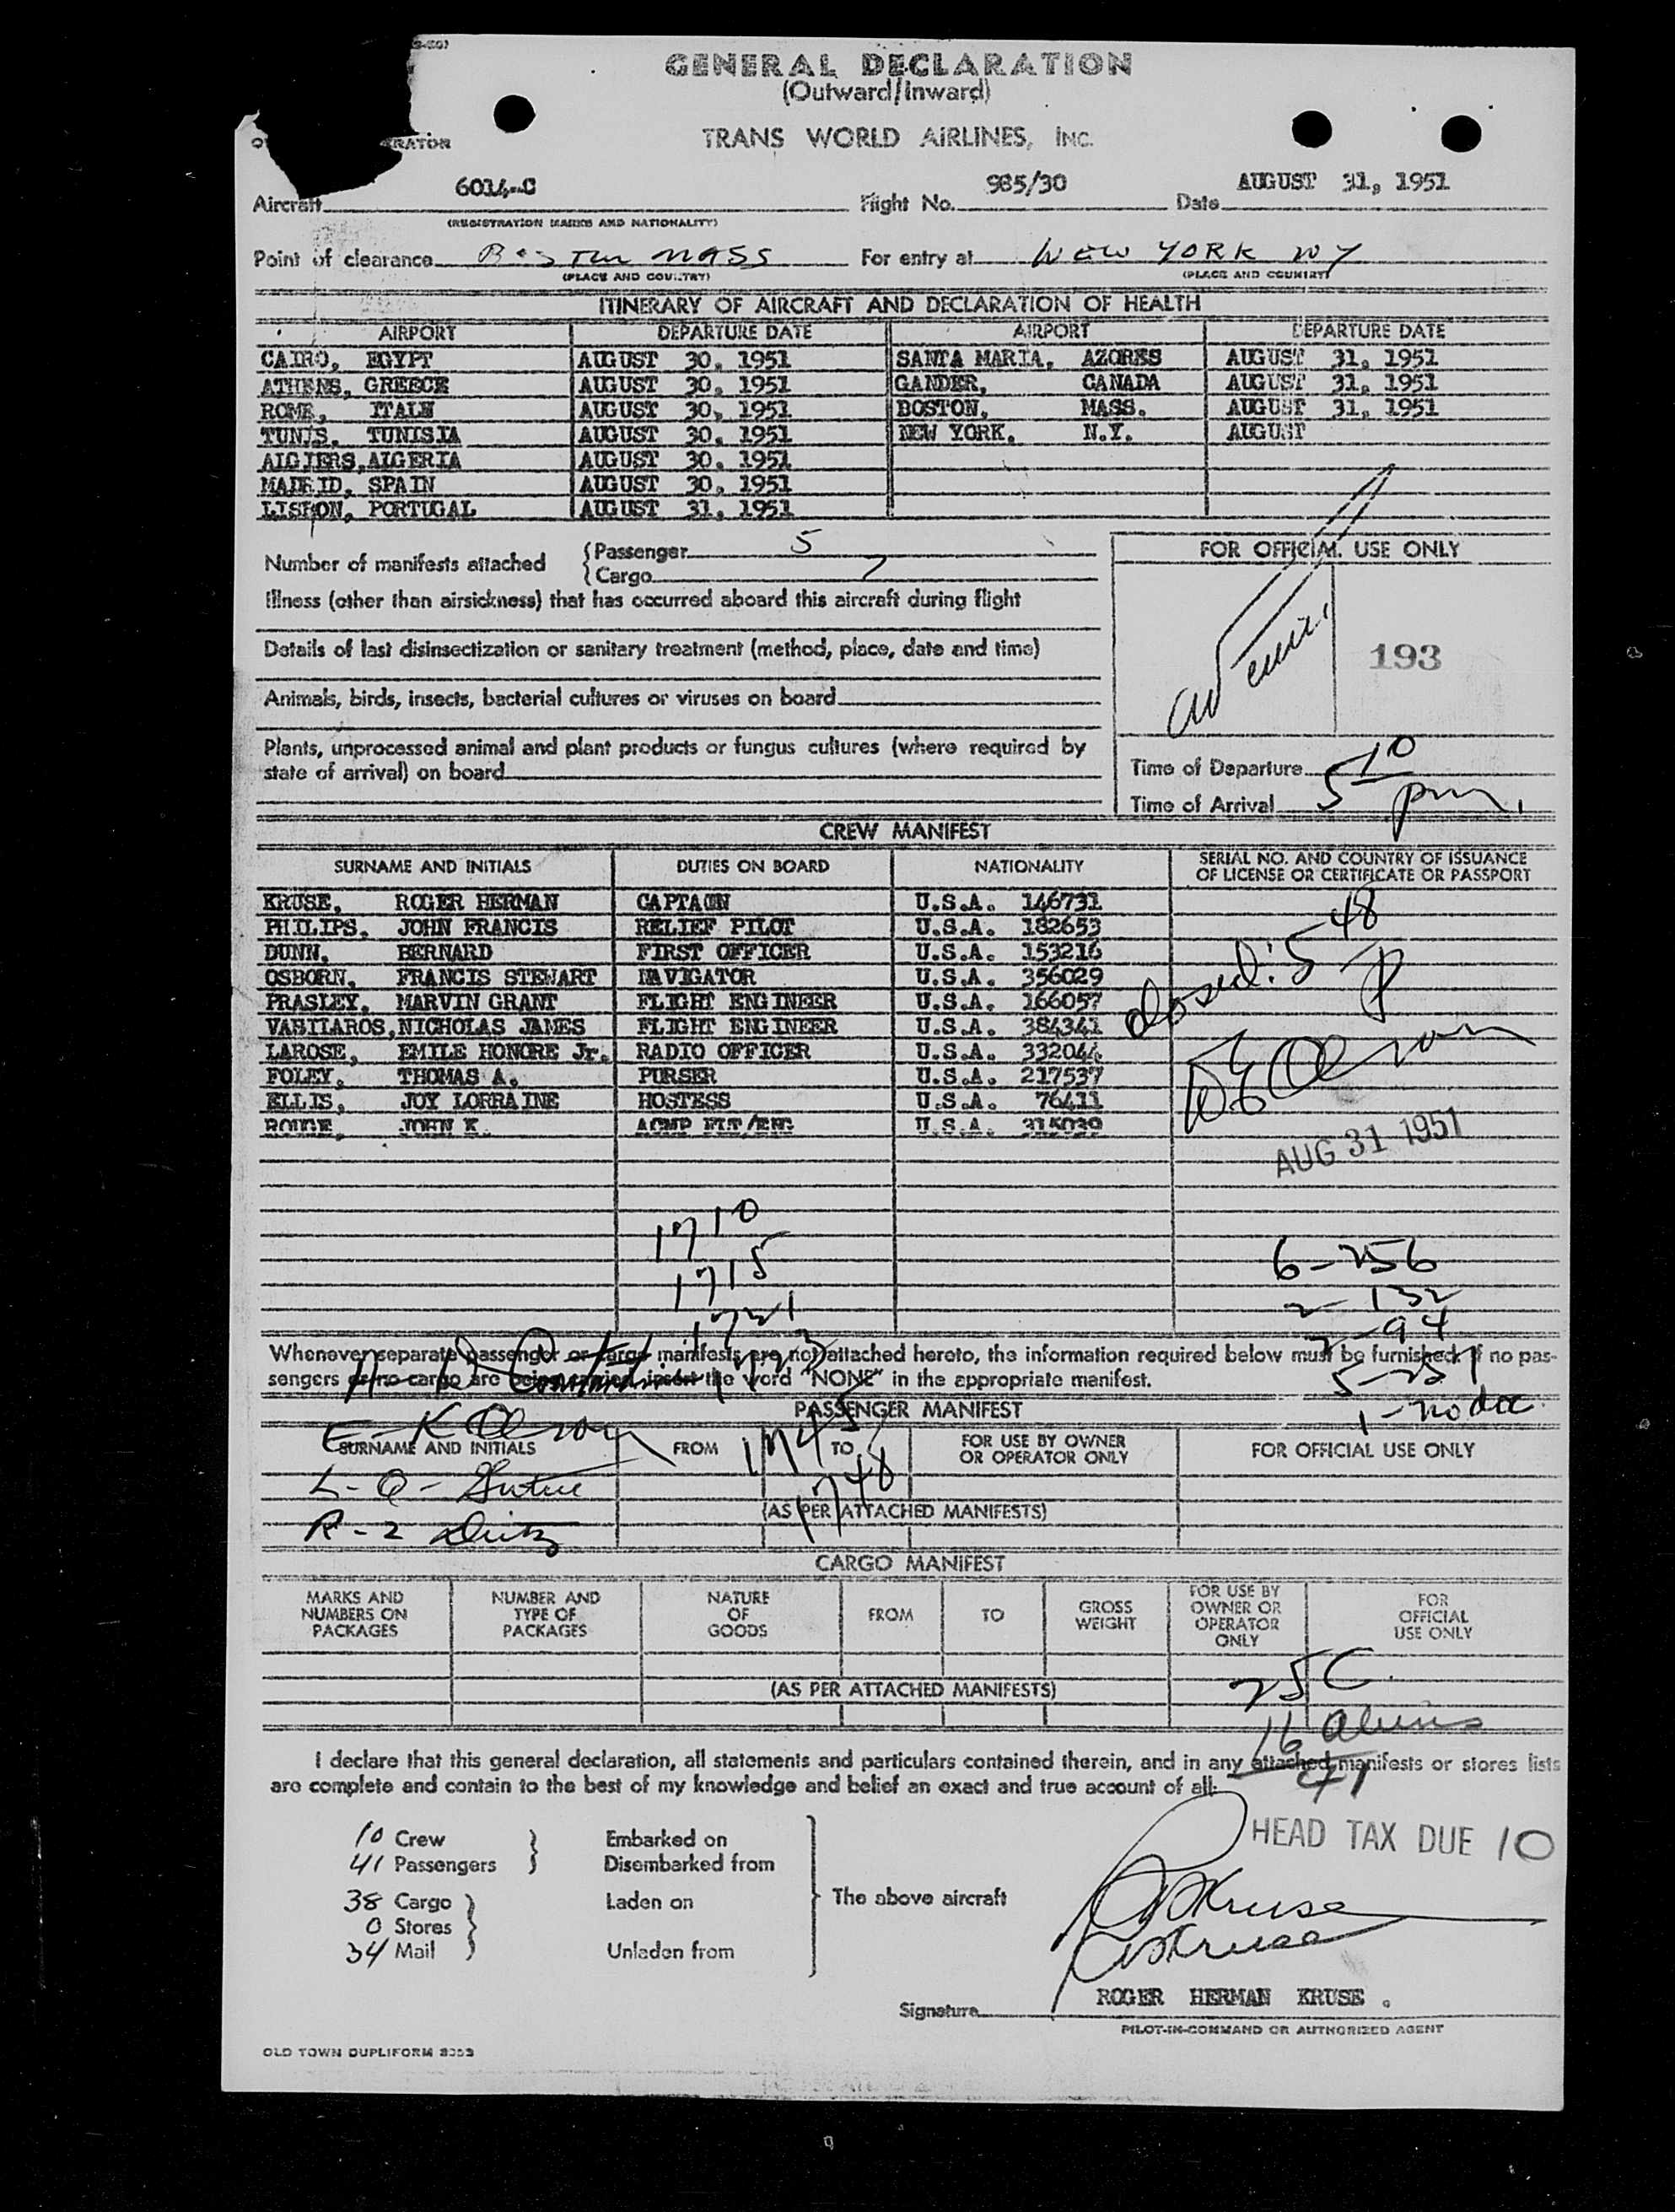 GENERAL DECLARATION
(Outward/Inward)
TRANS WORLD AIRLINES, INC.
Aircraft 6014-C Flight No. 985/30 Date AUGUST 31, 1951
(REGISTRATION MARKS AND NATIONALITY)
Point of clearance Boston MASS For entry at NEW YORK NY
(PLACE AND COUNTRY) (PLACE AND COUNTRY)
ITINERARY OF AIRCRAFT AND DECLARATION OF HEALTH
AIRPORT DEPARTURE DATE AIRPORT DEPARTURE DATE
CAIRO, EGYPT AUGUST 30, 1951 SANTA MARIA, AZORES AUGUST 31, 1951
ATHENS, GREECE AUGUST 30, 1951 GANDER, CANADA AUGUST 31, 1951
ROME, ITALY AUGUST 30, 1951 BOSTON, MASS. AUGUST 31, 1951
TUNIS, TUNISIA AUGUST 30, 1951 NEW YORK, N.Y. AUGUST
ALGIERS, ALGERIA AUGUST 30, 1951
MADRID, SPAIN AUGUST 30, 1951
LISBON, PORTUGAL AUGUST 31, 1951
Number of manifests attached
Passenger 5
Cargo 7
FOR OFFICIAL USE ONLY
Illness (other than airsickness) that has occurred aboard this aircraft during flight
Details of last disinsectization or sanitary treatment (method, place, date and time)
193
Animals, birds, insects, bacterial cultures or viruses on board
Plants, unprocessed animal and plant products or fungus cultures (where required by
state of arrival) on board
Time of Departure
Time of Arrival 5 10 pm.
CREW MANIFEST
SURNAME AND INITIALS DUTIES ON BOARD NATIONALITY SERIAL NO. AND COUNTRY OF ISSUANCE
OF LICENSE OR CERTIFICATE OR PASSPORT
KRUSE, ROGER HERMAN CAPTAON U.S.A. 146731
PHILIPS, JOHN FRANCIS RELIEF PILOT U.S.A. 182653
DUNN, BERNARD FIRST OFFICER U.S.A. 153216
OSBORN, FRANCIS STEWART NAVIGATOR U.S.A. 356029
PRASLEY, MARVIN GRANT FLIGHT ENGINEER U.S.A. 166057
VASILAROS, NICHOLAS JAMES FLIGHT ENGINEER U.S.A. 384341
LAROSE, EMILE HONORE Jr. RADIO OFFICER U.S.A. 332044
FOLEY, THOMAS A. PURSER U.S.A. 217537
ELLIS, JOY LORRAINE HOSTESS U.S.A. 76411
JOHN K. U.S.A. 315039
closed: 5 48 P
AUG 31 1951
1710
1715
1721
6-256
2-132
5-257
1-no doc.
Whenever separate passenger or cargo manifests are not attached hereto, the information required below must be furnished. If no pas-
sengers or no cargo are being carried, insert the word "NONE" in the appropriate manifest.
PASSENGER MANIFEST
SURNAME AND INITIALS FROM TO FOR USE BY OWNER
OR OPERATOR ONLY FOR OFFICIAL USE ONLY
1745
1748
(AS PER ATTACHED MANIFESTS)
CARGO MANIFEST
MARKS AND
NUMBERS ON
PACKAGES
NUMBER AND
TYPE OF
PACKAGES
NATURE
OF
GOODS
FROM
TO
GROSS
WEIGHT
FOR USE BY
OWNER OR
OPERATOR
ONLY
FOR
OFFICIAL
USE ONLY
(AS PER ATTACHED MANIFESTS)
25 C
16 aliens
41
I declare that this general declaration, all statements and particulars contained therein, and in any attached manifests or stores lists
are complete and contain to the best of my knowledge and belief an exact and true account of all:
HEAD TAX DUE 10
10 Crew Embarked on
41 Passengers Disembarked from
38 Cargo Laden on The above aircraft
0 Stores
34 Mail Unladen from
R H Kruse
R H Kruse
Signature ROGER HERMAN KRUSE .
PILOT-IN-COMMAND OR AUTHORIZED AGENT
OLD TOWN DUPLIFORM